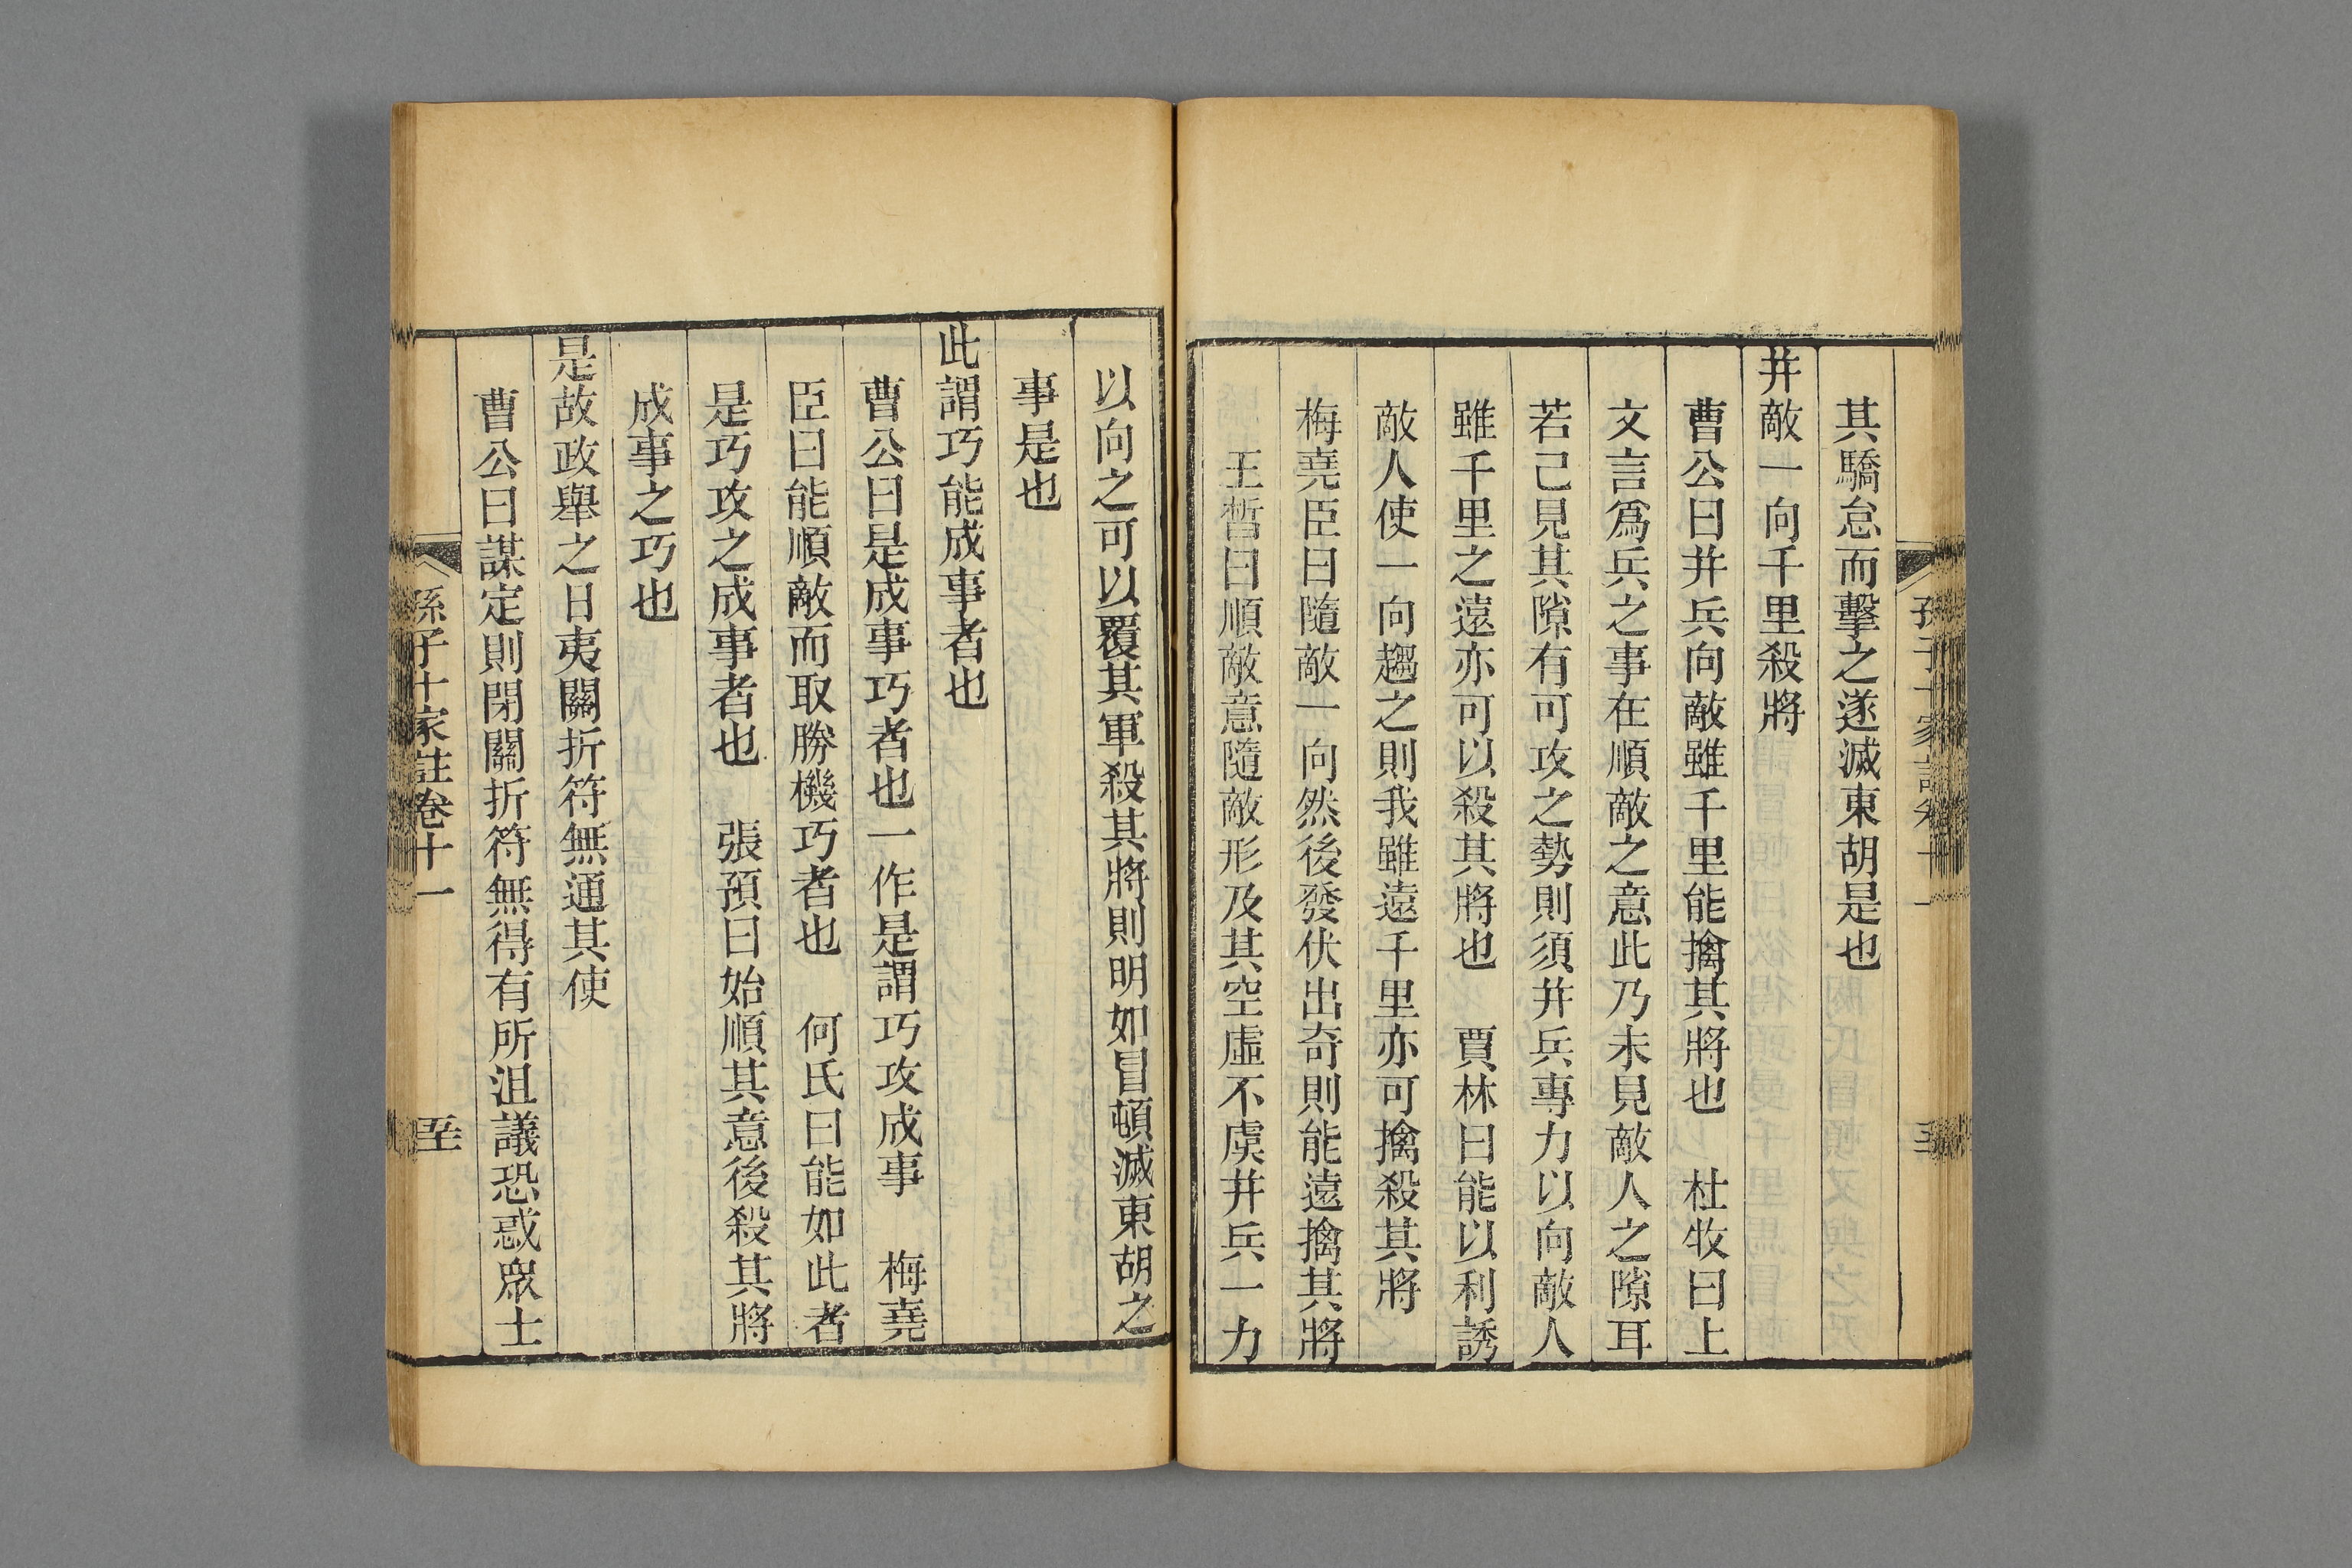 其驕怠而擊之遂滅東胡是也
并敵一向千里殺將
曹公曰并兵向敵雖千里能擒其將也　杜牧曰上
文言爲兵之事在順敵之意此乃未見敵人之隙耳
若己見其隙有可攻之勢則須并兵專力以向敵人
雖千里之遠亦可以殺其將也　賈林曰能以利誘
敵人使一向趨之則我雖遠千里亦可擒殺其將
梅堯臣曰隨敵一向然後發伏出奇則能遠擒其將
王晳曰順敵意隨敵形及其空虛不虞并兵一力
以向之可以覆其軍殺其將則明如冒頓滅東胡之
事是也
此謂巧能成事者也
曹公曰是成事巧者也一作是謂巧攻成事　梅堯
臣曰能順敵而取勝機巧者也　何氏曰能如此者
是巧攻之成事者也　張預曰始順其意後殺其將
成事之巧也
是故政舉之日夷關折符無通其使
曹公曰謀定則閉關折符無得有所沮議恐惑眾士
孫子十家註卷十一